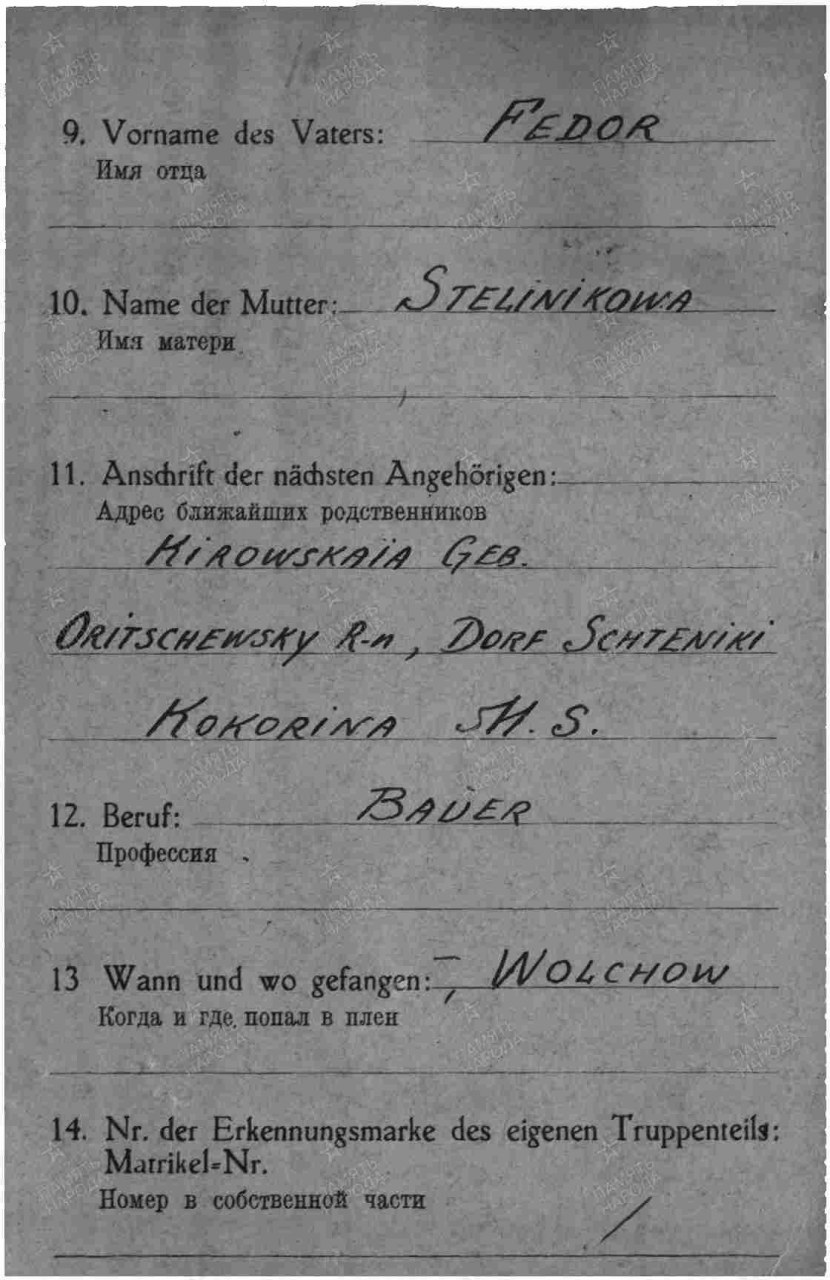 9. Vorname des Vaters: FEDOR
Имя отца
10. Name der Mutter: STELINIKOWA
Имя матери
11. Anschrift der nächsten Angehörigen:
Адрес ближайших родственников
KIROWSKAÏA GEB.
ORITSCHEWSKY R-n, DORF SCHTENIKI
KOKORINA M. S.
12. Beruf: BAUER
Профессия
13 Wann und wo gefangen: —, WOLCHOW
Когда и где попал в плен
14. Nr. der Erkennungsmarke des eigenen Truppenteils:
Matrikel=Nr.
Номер в собственной части /
ПАМЯТЬ НАРОДА